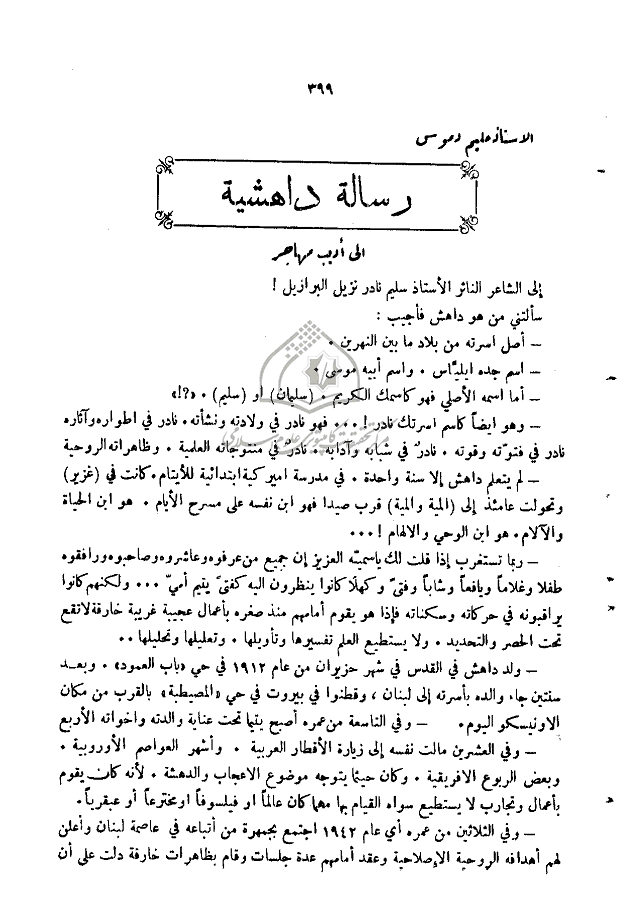 ٣٩٩
الاستاذ حليم دموس
رسالة داهشية
الى أديب مهاجر
إلى الشاعر الناثر الأستاذ سليم نادر نزيل البرازيل !
سألتني من هو داهش فأجيب :
– أصل اسرته من بلاد ما بين النهرين .
– اسم جده ايليّاس . واسم أبيه موسى .
– أما اسمه الأصلي فهو كاسمك الكريم . (سليمان) أو (سليم) . «?!»
– وهو ايضاً كاسم اسرتك نادر ! ... فهو نادر في ولادته ونشأته . نادر في اطواره وآثاره
نادر في فتوّته وقوته . نادرٌ في شبابه وآدابه . نادرٌ في منتوجاته العلمية . وظاهراته الروحية
– لم يتعلم داهش إلا سنة واحدة . في مدرسة اميركية ابتدائية للأيتام . كانت في (غزير)
وتحولت عامئذ إلى (المية والمية) قرب صيدا فهو ابن نفسه على مسرح الأيام . هو ابن الحياة
والآلام . هو ابن الوحي والالهام ! ...
– ربما تستغرب إذا قلت لك ياسميّه العزيز إن جميع من عرفوه وعاشروه وصاحبوه ورافقوه
طفلا وغلاماً ويافعاً وشاباً وفتىً وكهلا كانوا ينظرون اليه كفتىً يتيم أميّ ... ولكنهم كانوا
يراقبونه في حركاته وسكناته فإذا هو يقوم أمامهم منذ صغره بأعمال عجيبة غريبة خارقة لا تقع
تحت الحصر والتحديد . ولا يستطيع العلم تفسيرها وتأويلها . وتعليلها وتحليلها ..
– ولد داهش في القدس في شهر حزيران من عام ١٩١٢ في حي «باب العمود» . وبعد
سنتين جاء والده بأسرته إلى لبنان ، وقطنوا في بيروت في حي «المصيطبة» بالقرب من مكان
الاونيسكو اليوم . – وفي التاسعة من عمره أصبح يتيما تحت عناية والدته واخواته الأربع
– وفي العشرين مالت نفسه إلى زيارة الأقطار العربية . وأشهر العواصم الأوروبية .
وبعض الربوع الافريقية . وكان حيثما يتوجه موضوع الاعجاب والدهشة . لأنه كان يقوم
بأعمال وتجارب لا يستطيع سواه القيام بها مهما كان عالماً او فيلسوفاً او مخترعاً أو عبقرياً .
– وفي الثلاثين من عمره أي عام ١٩٤٢ اجتمع بجمهرة من أتباعه في عاصمة لبنان وأعلن
لهم أهدافه الروحية الإصلاحية وعقد أمامهم عدة جلسات وقام بظاهرات خارقة دلت على أن